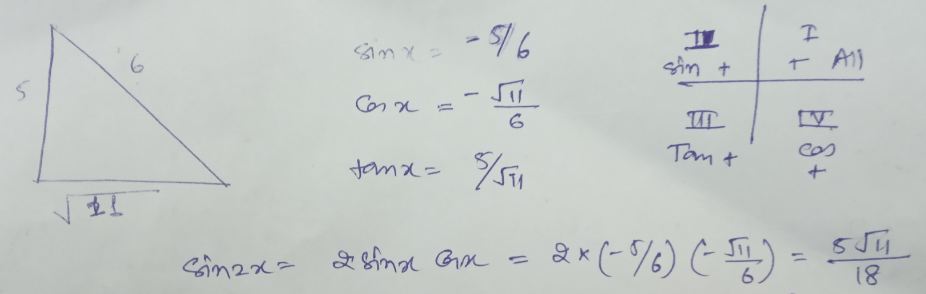 5
6
√11
sin x = - 5/6
Cos x = - √11/6
tan x = 5/√11
II
sin +
I
+ All
III
Tan +
IV
cos
+
sin2x = 2 sinx cosx = 2 × (- 5/6) (- √11/6) = 5√11/18